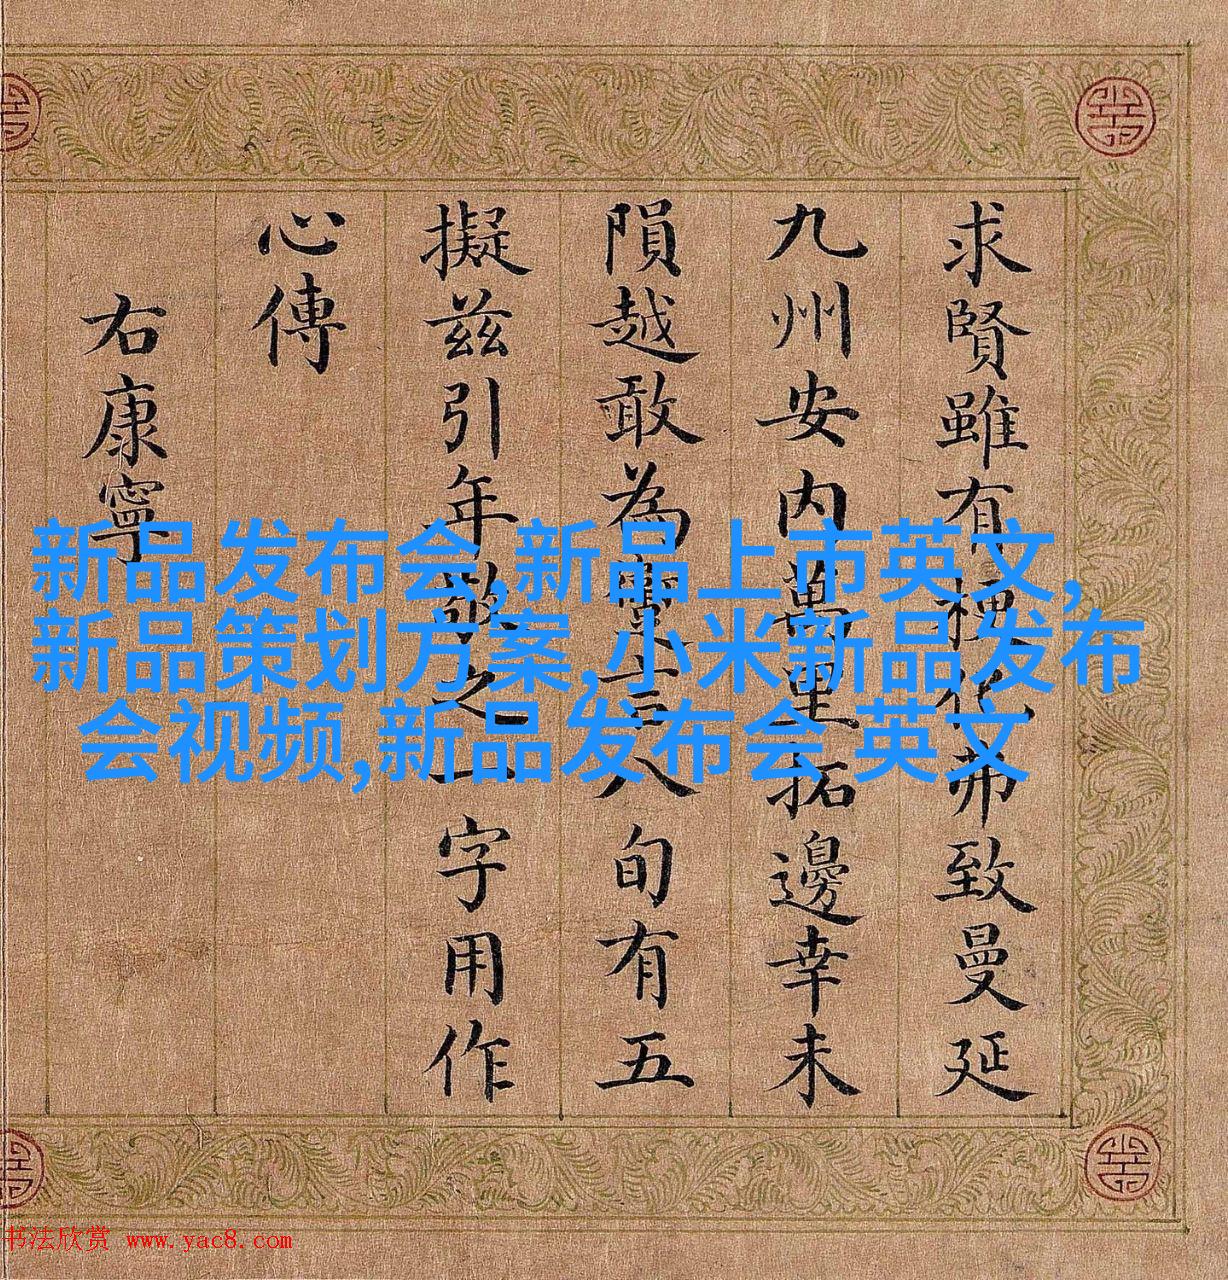 求賢雖有梗化弗致曼延
九州安内萬里拓邊幸未
隕越敢為言八旬有五
擬兹引年敬之一字用作
心傳
右康寧
新品发布会,新品上市英文,
新品策划方案,小米新品发布
会视频,新品发布会 英文
书法欣赏 www.yac8.com